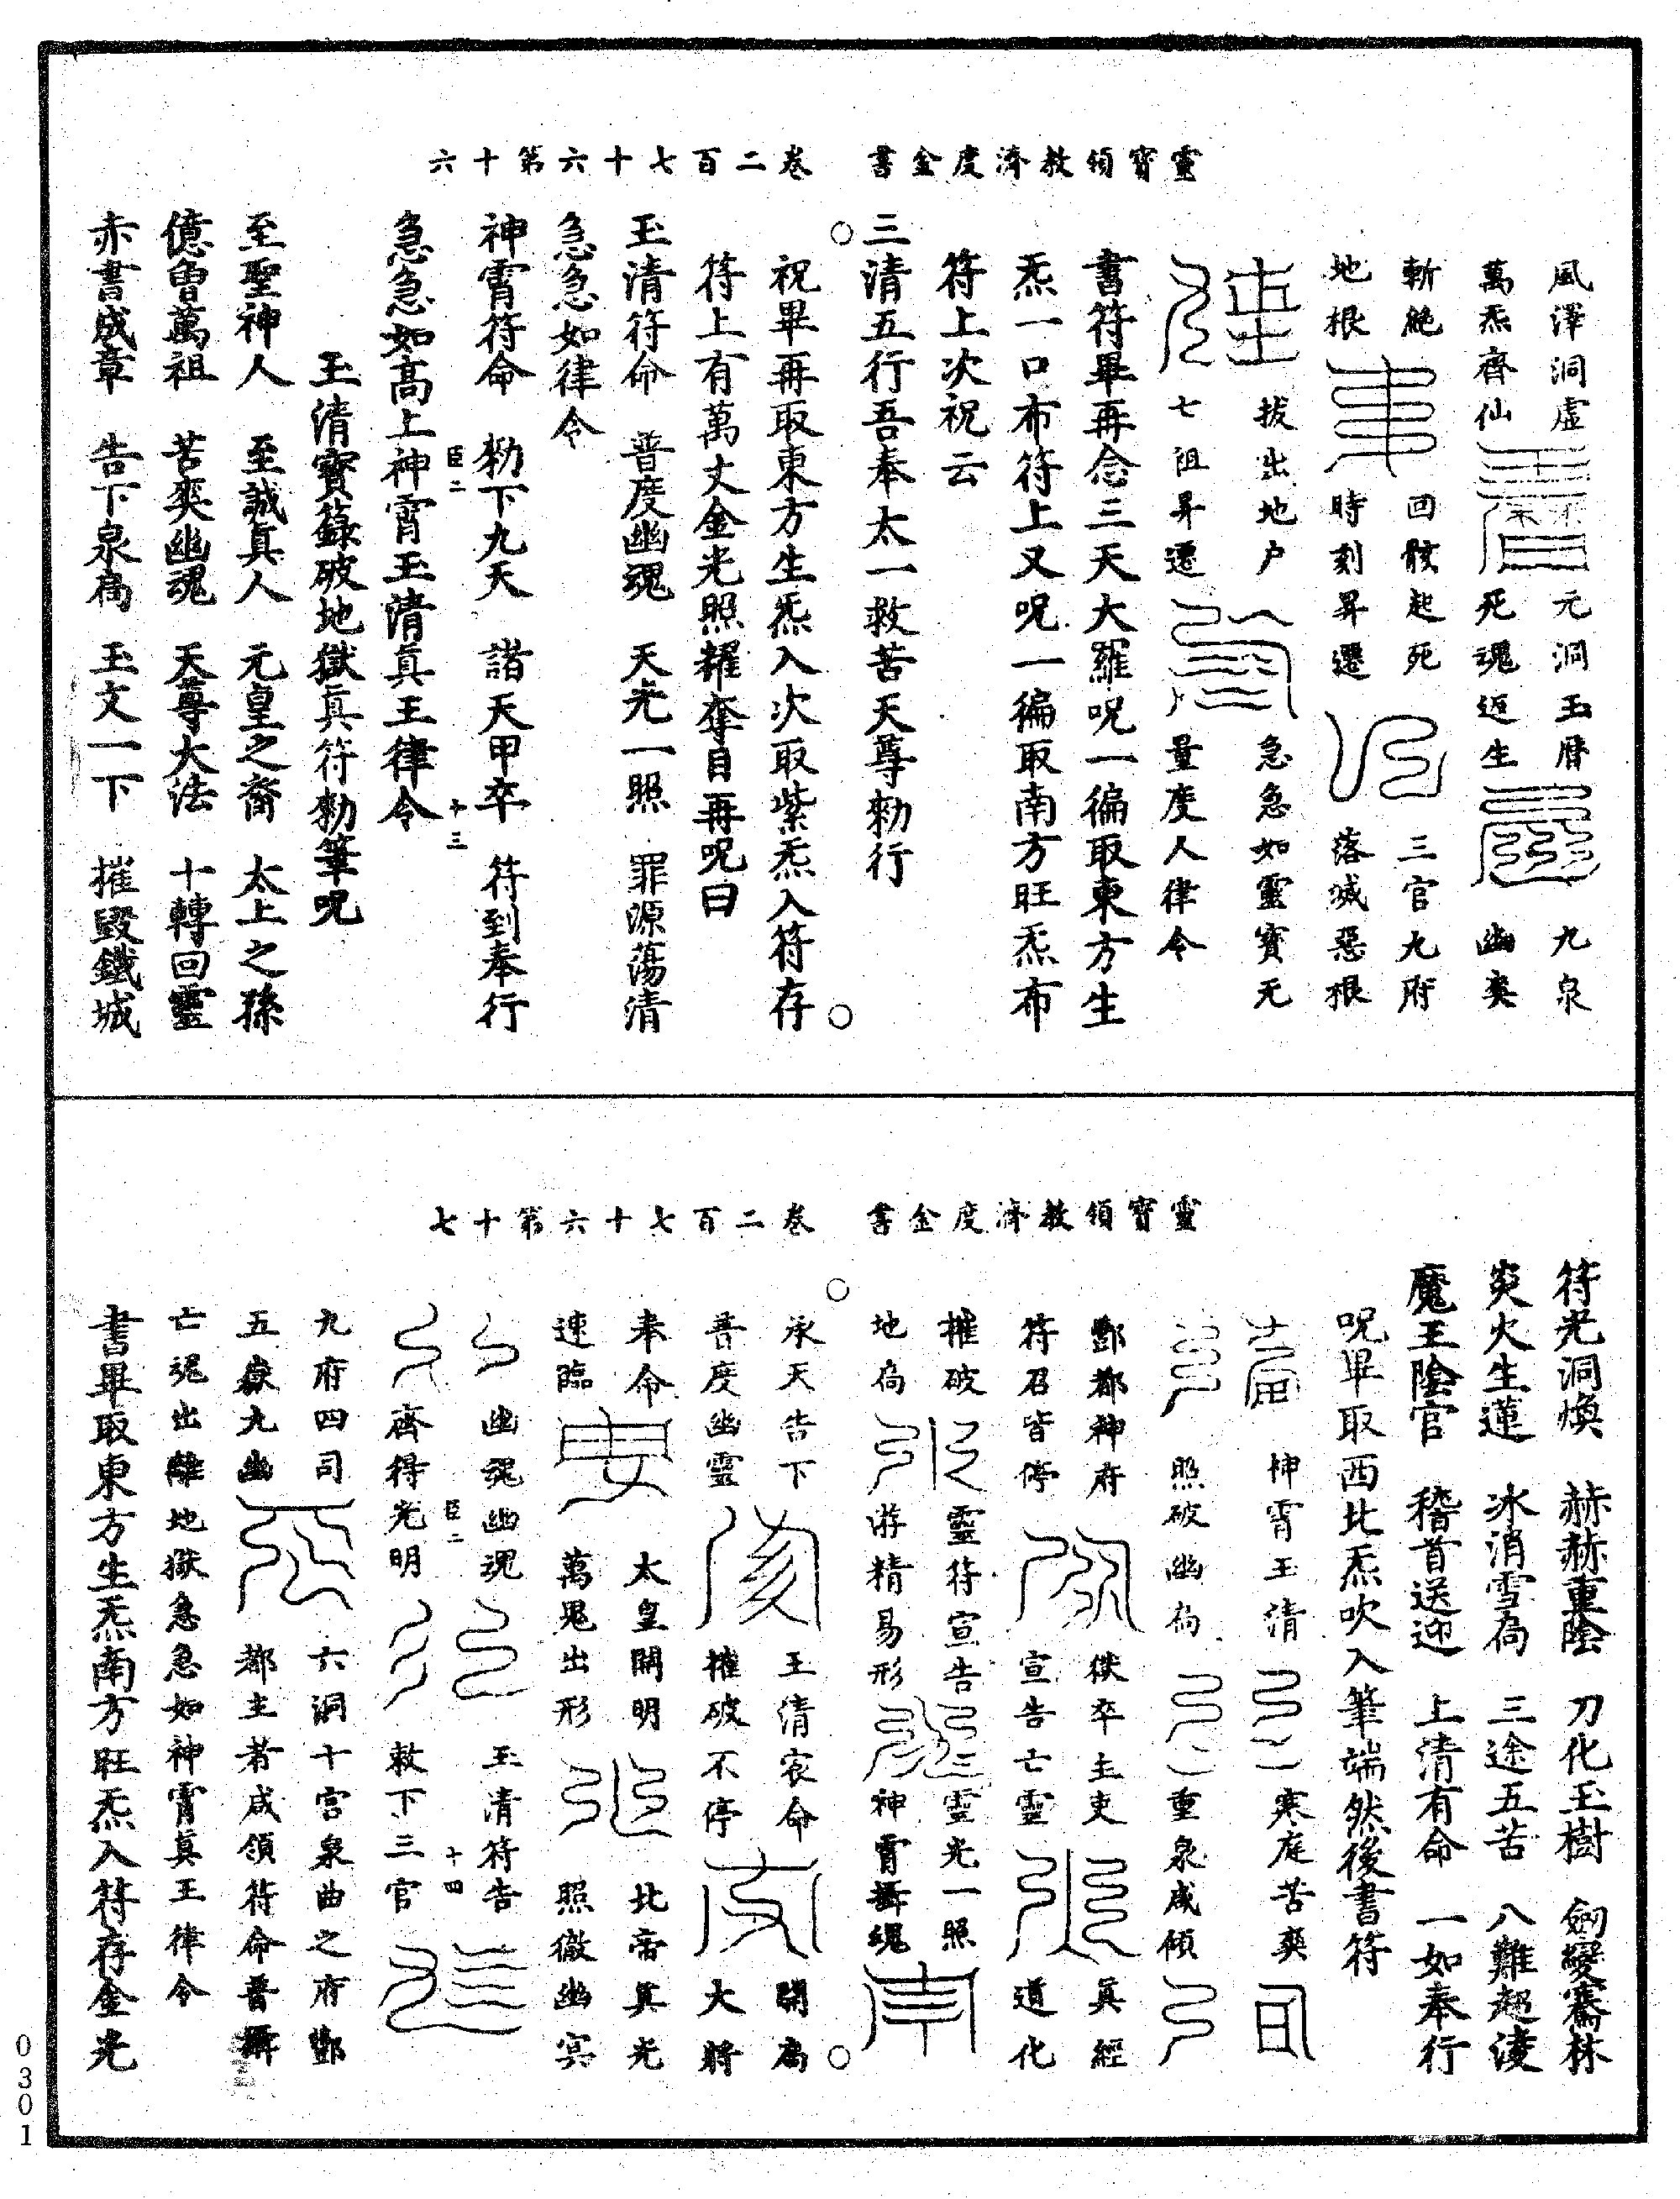 靈寶領教濟度金書　卷二百七十六第十六
風澤洞虛　元洞玉曆　九泉
萬炁齊仙　死魂返生　幽爽
斬絶　回骸起死　三官九府
地根　時刻昇遷　落滅惡根
拔出地户　急急如靈寶无
七祖昇遷　量度人律令
書符畢再念三天大羅呪一徧取東方生
炁一口布符上又呪一徧取南方旺炁布
符上次祝云
三清五行吾奉太一救苦天尊勑行
祝畢再取東方生炁入次取紫炁入符存
符上有萬丈金光照耀奪目再呪曰
玉清符命　普度幽魂　天光一照　罪源蕩清
急急如律令
神霄符命　勑下九天　諸天甲卒　符到奉行
臣二　十三
急急如髙上神霄玉清眞王律令
玉清寶籙破地獄眞符勑筆呪
至聖神人　至誠真人　元皇之裔　太上之孫
億曾萬祖　苦爽幽魂　天尊大法　十轉回靈
赤書成章　告下泉扃　玉文一下　摧毀鐵城
靈寶領教濟度金書　卷二百七十六第十七
符光洞煥　赫赫重陰　刀化玉樹　劒變騫林
炎火生蓮　冰消雪扃　三途五苦　八難超淩
魔王陰官　稽首送迎　上清有命　一如奉行
呪畢取西北炁吹入筆端然後書符
神霄玉清　寒庭苦爽
照破幽扃　重泉咸傾
酆都神府　獄卒主吏　眞經
符召皆停　宣告亡靈　道化
摧破　靈符宣告　三靈光一照
地扃　游精易形　神霄攝魂
承天告下　玉清哀命　開扃
普度幽靈　摧破不停　大將
奉命　太皇開明　北帝眞光
速臨　萬鬼出形　照徹幽冥
幽魂幽魂　玉清符告
臣二　十四
齊得光明　敕下三官
九府四司　六洞十宮泉曲之府酆
五嶽九幽　都主者咸領符命普攝
亡魂出離地獄急急如神霄眞王律令
書畢取東方生炁南方旺炁入符存金光
0301